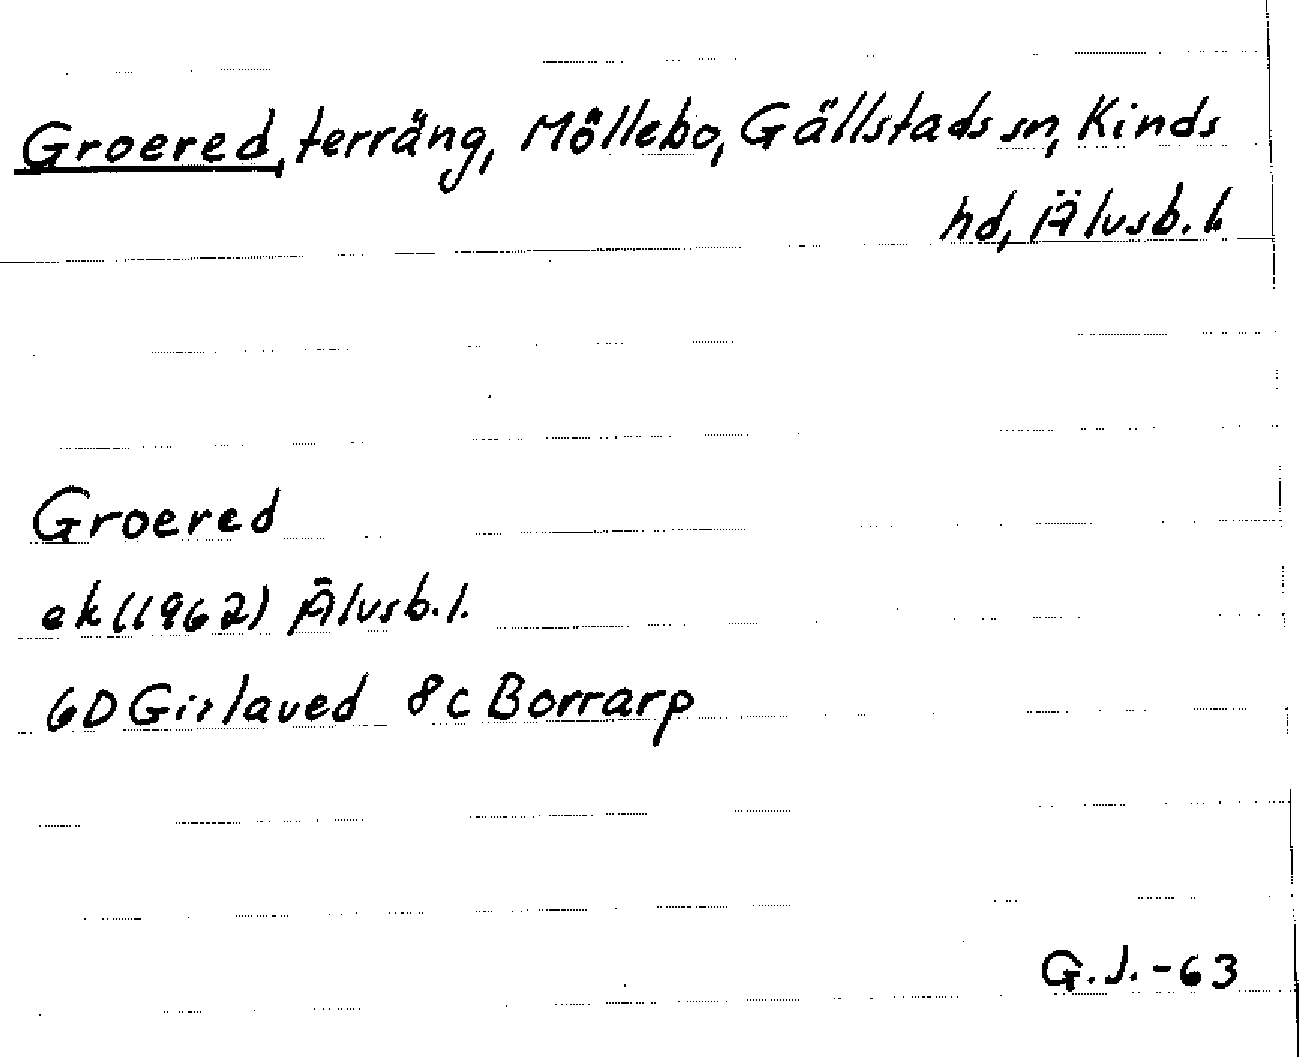 Groered, terräng, Möllebo, Gällstads sn, Kinds
hd, Älvsb. l.
Groered
ek (1962) Älvsb. l.
6D Gislaved 8c Borrarp
G.J.-63